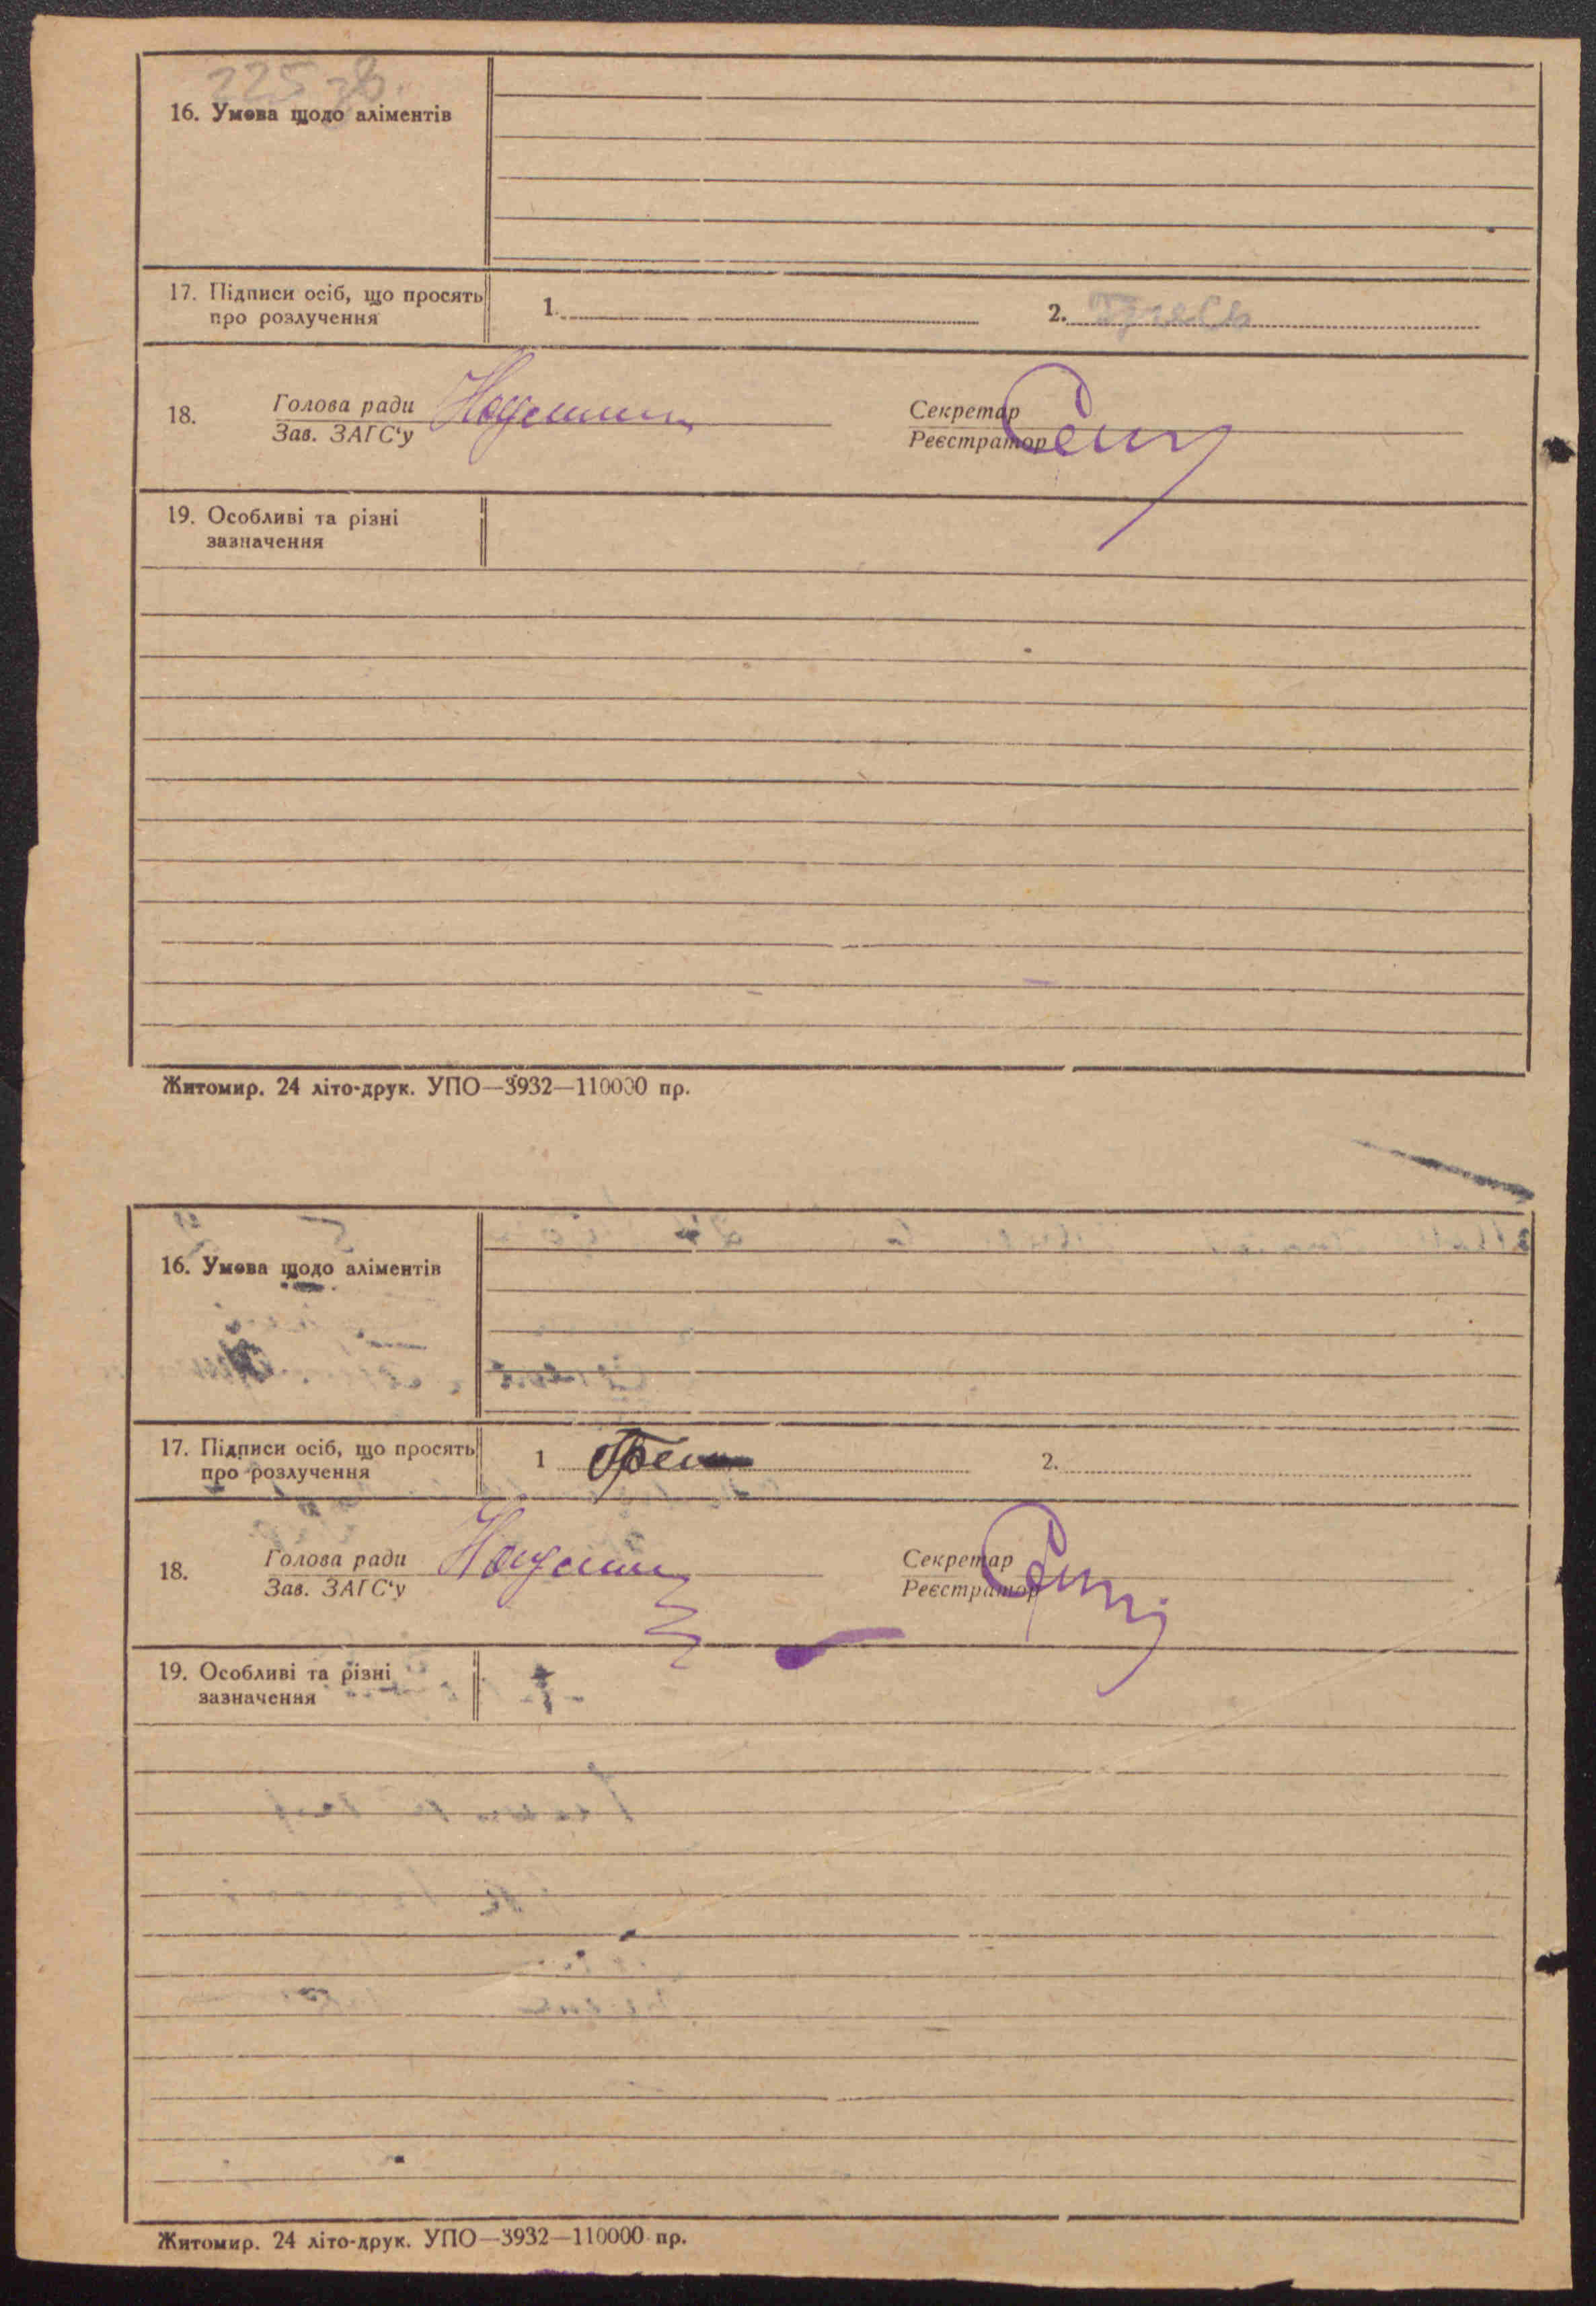 225 зв.
16. Умова щодо аліментів
17. Підписи осіб, що просять
про розлучення
1.
2.
18.
Голова ради
Зав. ЗАГС‘у
Секретар
Реєстратор
19. Особливі та різні
зазначення
Житомир. 24 літо-друк. УПО—3932—110000 пр.
16. Умова щодо аліментів
17. Підписи осіб, що просять
про розлучення
1
2.
18.
Голова ради
Зав. ЗАГС‘у
Секретар
Реєстратор
19. Особливі та різні
зазначення
Житомир. 24 літо-друк. УПО—3932—110000 пр.